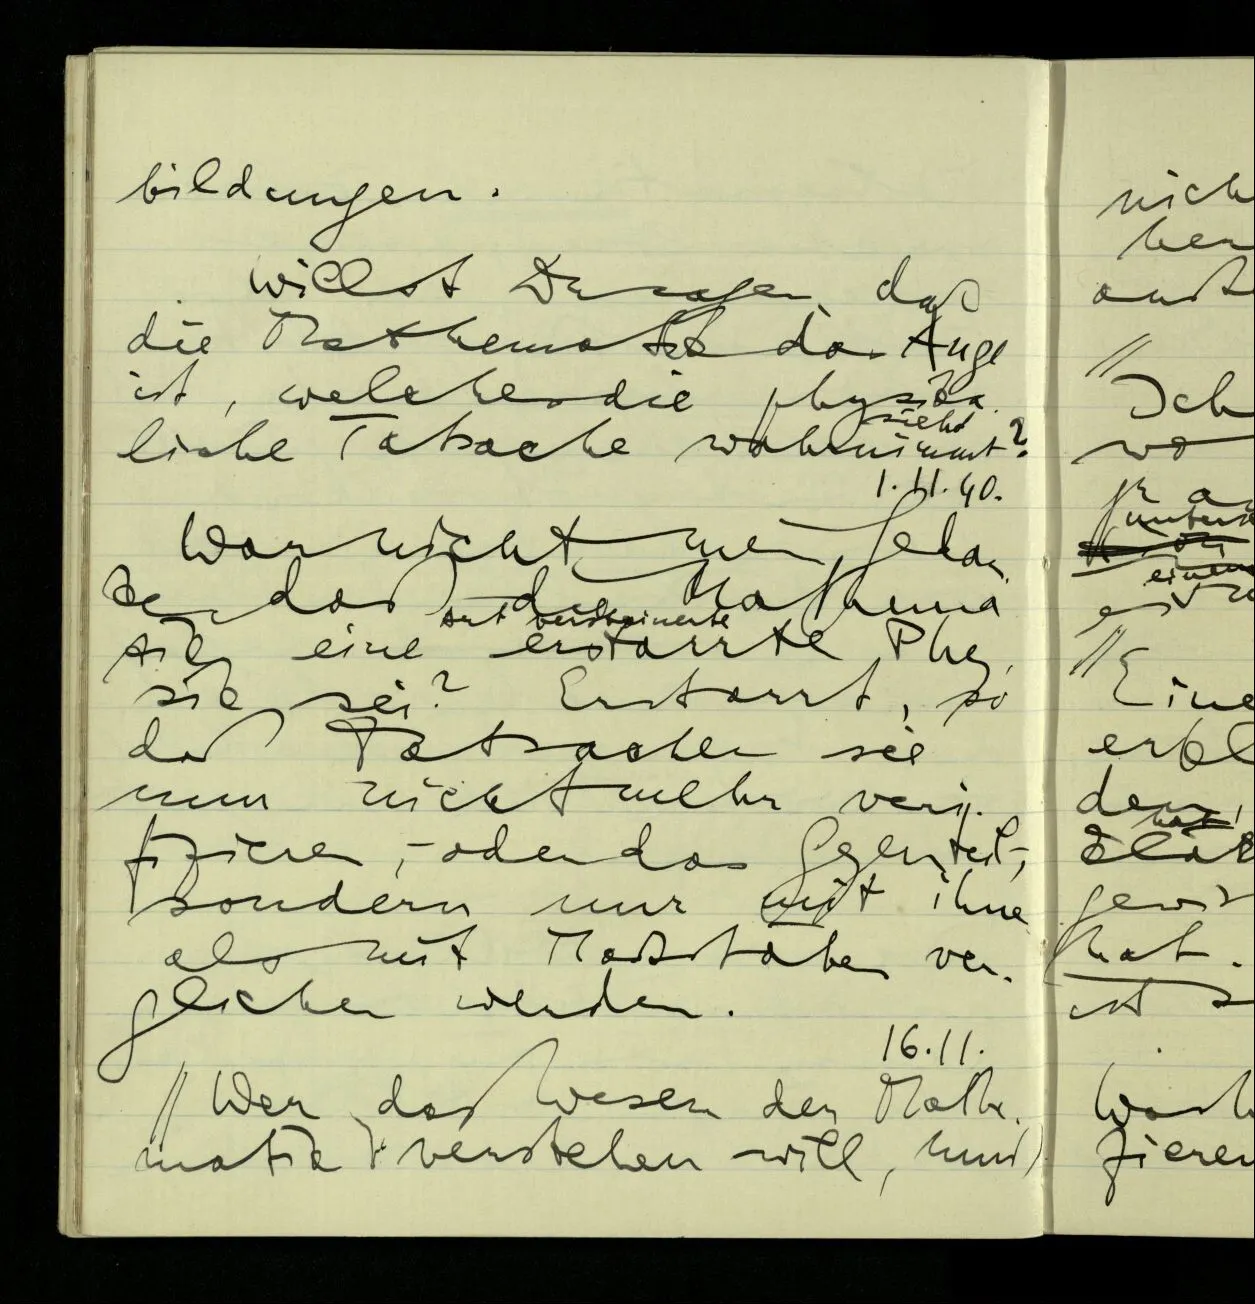 bildungen.
Willst Du sagen, daß
die Mathematik das Auge
ist, welches die physika-
sieht
liche Tatsache wahrnimmt?
1.11.40.
War nicht mein Gedan-
ke, daß die Mathema-
versteinerte
tik eine erstarrte Phy-
sik sei? Erstarrt, so
daß Tatsachen sie
nun nicht mehr veri-
fizieren, – oder das Gegenteil –,
sondern nur mit ihne
als mit Maßstäben ver-
glichen werden.
16.11.
// Wer das Wesen der Mathe-
matik verstehen will, muß
nich
ben
//
Ich
wo
einem
// Eine
erkl
dem,
gewis
hat.
ist
fizieren